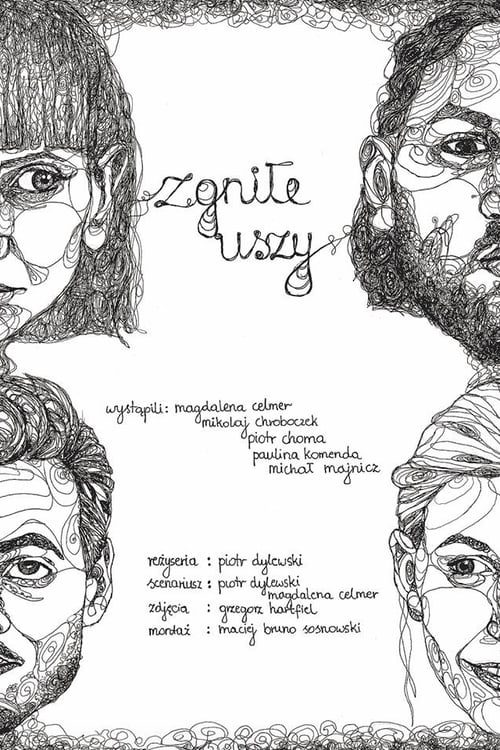 zgniłe
uszy
wystąpili: magdalena celmer
mikołaj chroboczek
piotr choma
paulina komenda
michał majnicz
reżyseria : piotr dylewski
scenariusz : piotr dylewski
magdalena celmer
zdjęcia : grzegorz hartfiel
montaż : maciej bruno sosnowski